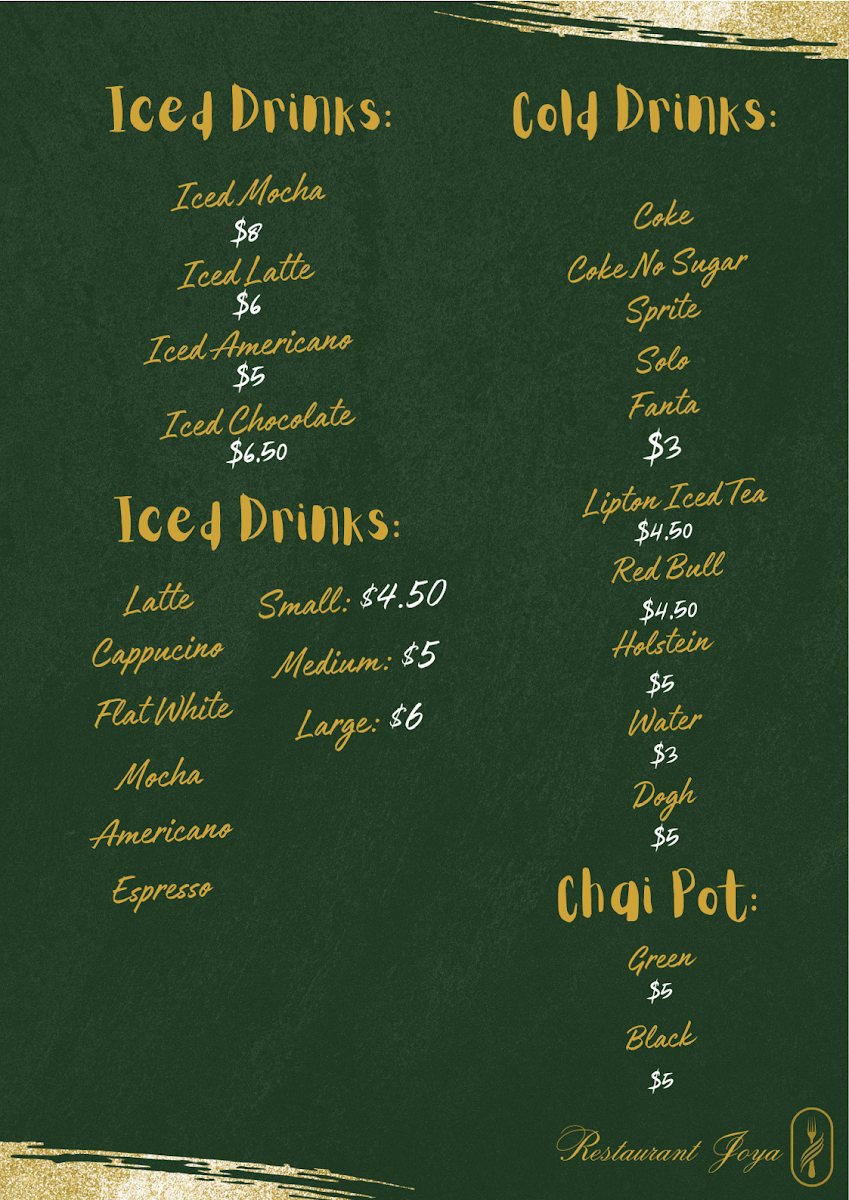 Iced Drinks:
Iced Mocha
$8
Iced Latte
$6
Iced Americano
$5
Iced Chocolate
$6.50
Iced Drinks:
Latte
Cappucino
Flat White
Mocha
Americano
Espresso
Small: $4.50
Medium: $5
Large: $6
Cold Drinks:
Coke
Coke No Sugar
Sprite
Solo
Fanta
$3
Lipton Iced Tea
$4.50
Red Bull
$4.50
Holstein
$5
Water
$3
Dogh
$5
Chai Pot:
Green
$5
Black
$5
Restaurant Joya